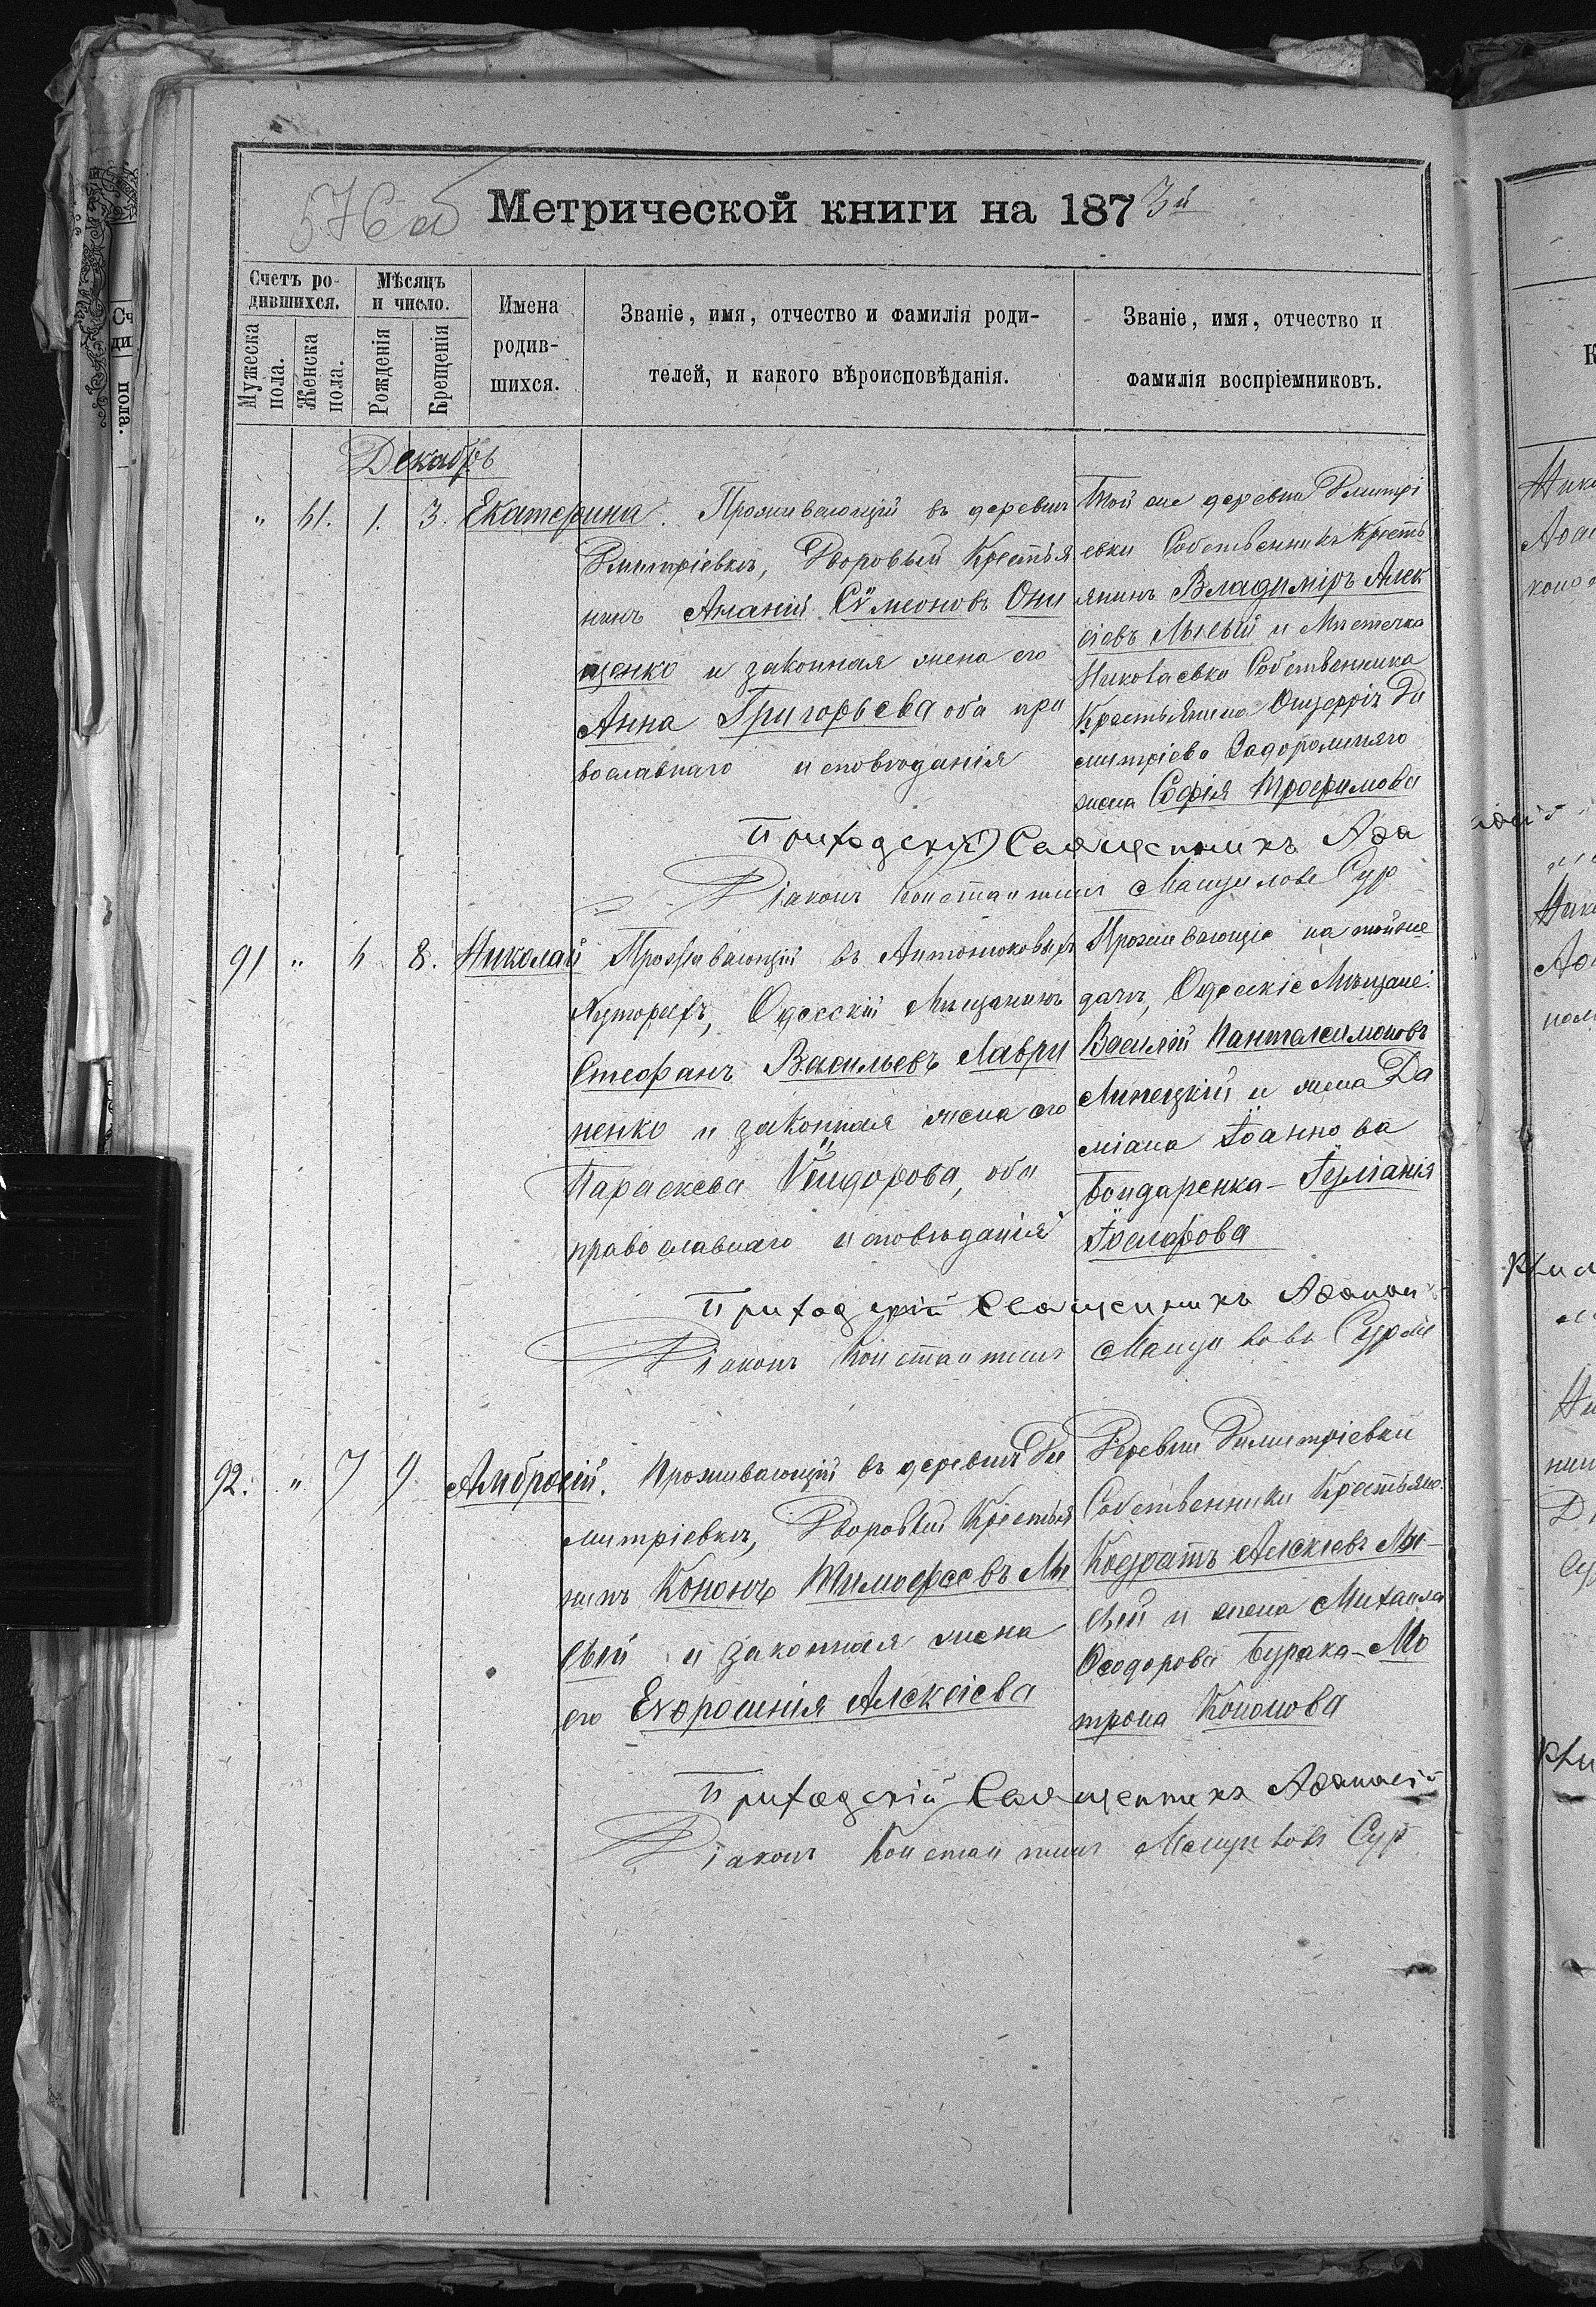 576 об
Метрической книги на 1873й
Счетъ ро-
дившихся.
Мѣсяцъ
и число.
Мужеска
пола.
Женска
пола.
Рожденія
Крещенія
Имена
родив-
шихся.
Званіе, имя, отчество и фамилія роди-
телей, и какого вѣроисповѣданія.
Званіе, имя, отчество и
фамилія воспріемниковъ.
Декабрь
" 61. 1. 3. Екатерина.
Проживающій въ деревнѣ
Дмитріевкѣ, Дворовый Крестья
нинъ Ананій Сѵмеоновъ Они
щенко и законная жена его
Анна Григорьева оба пра
вославнаго исповѣданія
Той же деревни Дмитрі
евки Собственникъ Кресть
янинъ Владиміръ Алек
сіевъ Лысый и Мѣстечка
Николаевки Собственника
Крестьянина Ди
митріева Задорожняго
жена Софія Трофимова
Приходскій Священникъ Аѳа
Діаконъ Константинъ Сур
91 " 6 8. Николай
Проживающій въ Антоноковыхъ
Хуторахъ, Одесскій Мѣщанинъ
Стефанъ Васильевъ Лаври
ненко и законная жена его
Параскева Ѵсидорова, оба
православнаго исповѣданія
Проживающіе на той же
дачѣ, Одесскіе Мѣщане:
Василій Пантелеимоновъ
Липецкій и жена Да
міана Іоаннова
Бондаренка - Іуліанія
Іосифова
Приходскій Священникъ Аѳанасій
Діаконъ Константинъ Сурме
92. " 7 9 Амвросій.
Проживающій въ деревнѣ Ди
митріевкѣ, Дворовый Крестья
нинъ Кононъ Тимофеевъ Лы
сый и законная жена
его Еѵфросинія Алексіева
Деревни Димитріевки
Собственники Крестьяне:
Кодратъ Алексіевъ Лы-
сый и жена Михаила
Ѳеодорова Бурака - Ма
трона Кононова
Приходскій Священникъ Аѳанасій
Діаконъ Константинъ Сур